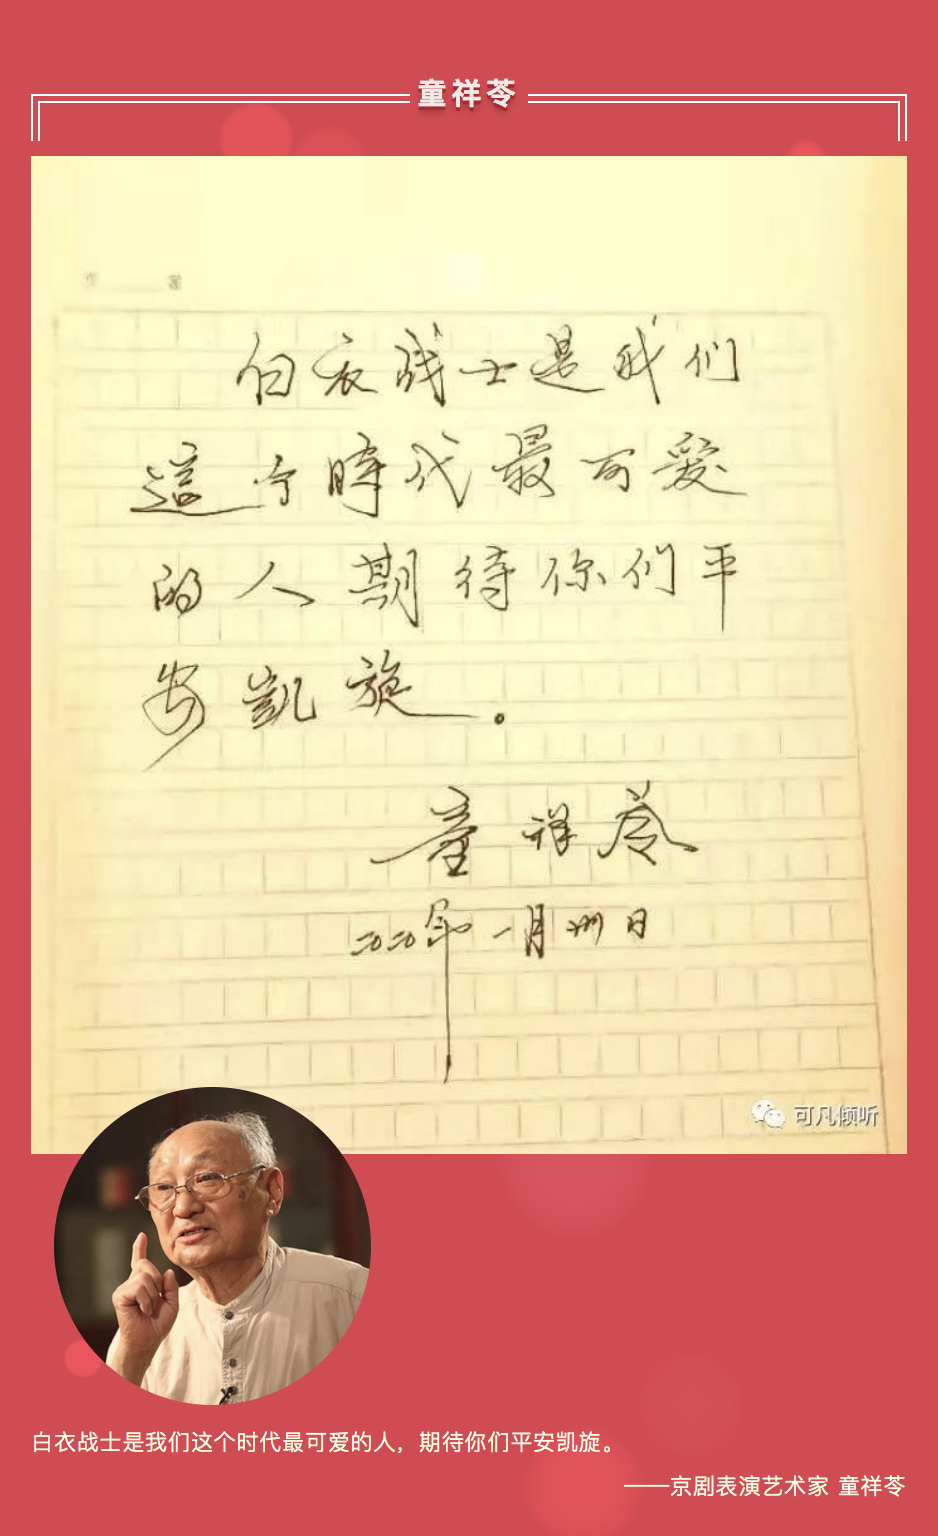 童祥苓
白衣战士是我们
這个時代最可爱
的人期待你们平
安凱旋。
童祥苓
二〇二〇年一月卅日
可凡倾听
白衣战士是我们这个时代最可爱的人，期待你们平安凯旋。
——京剧表演艺术家 童祥苓